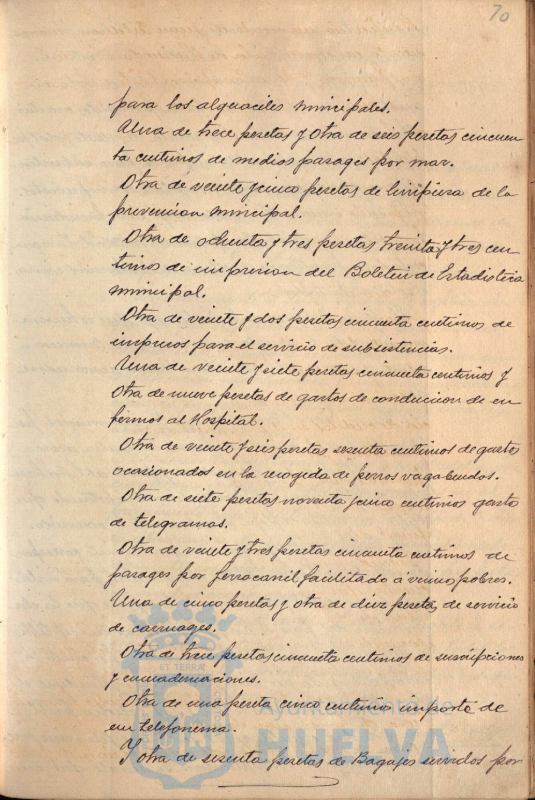 70
para los alguaciles municipales.
Una de trece pesetas y otra de seis pesetas cincuen
ta centimos de medios pasages por mar.
Otra de veinte y cinco pesetas de limpieza de la
prevencion municipal.
Otra de ochenta y tres pesetas treinta y tres cen
timos de impresion del Boletin de Estadistica
municipal.
Otra de veinte y dos pesetas cincuenta centimos de
impresos para el servicio de subsistencias.
Una de veinte y siete pesetas cincuenta centimos y
otra de nueve pesetas de gastos de conducion de en
fermos al Hospital.
Otra de veinte y seis pesetas sesenta centimos de gastos
ocasionados en la recogida de perros vagabundos.
Otra de siete pesetas noventa y cinco centimos gasto
de telegramas.
Otra de veinte y tres pesetas cincuenta centimos de
pasages por ferrocarril facilitado á vecinos pobres.
Una de cinco pesetas y otra de diez pesetas, de servicio
de carruages.
Otra de trece pesetas cincuenta centimos de suscripciones
y encuadernaciones.
Otra de una peseta cinco centimos importe de
un telefonema.
Y otra de sesenta pesetas de Bagajes servidos por
ET TERRA
Ayuntamiento de
HUELVA